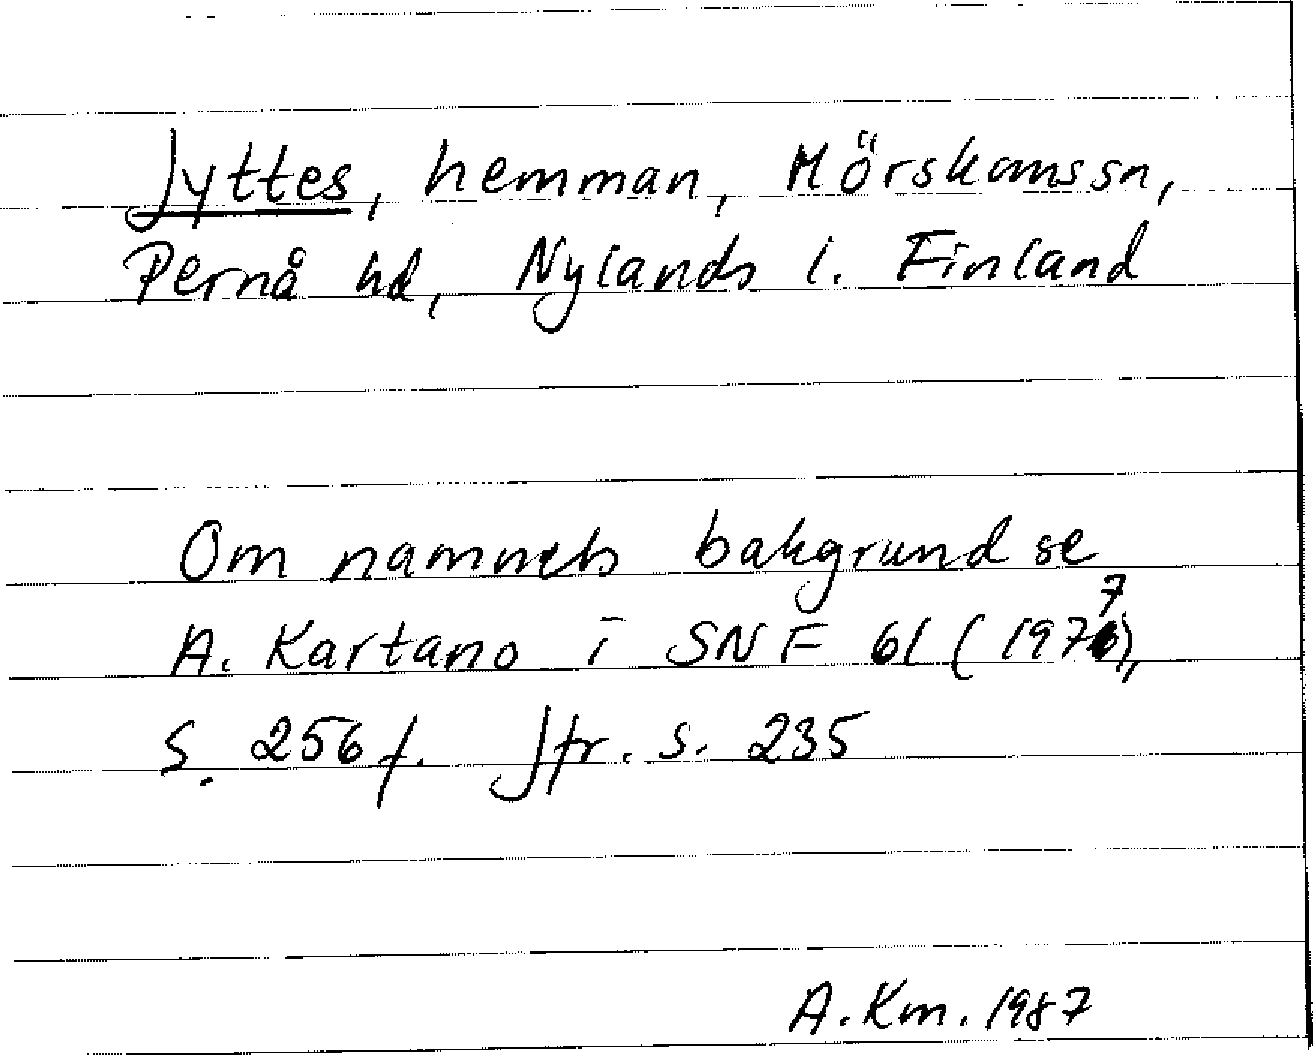 Jyttes, hemman, Mörskoms sn,
Pernå hd, Nylands l. Finland
Om namnets bakgrund se
A. Kartano i SNF 61 (1977),
s. 256 f. Jfr. s. 235
A. Km. 1987